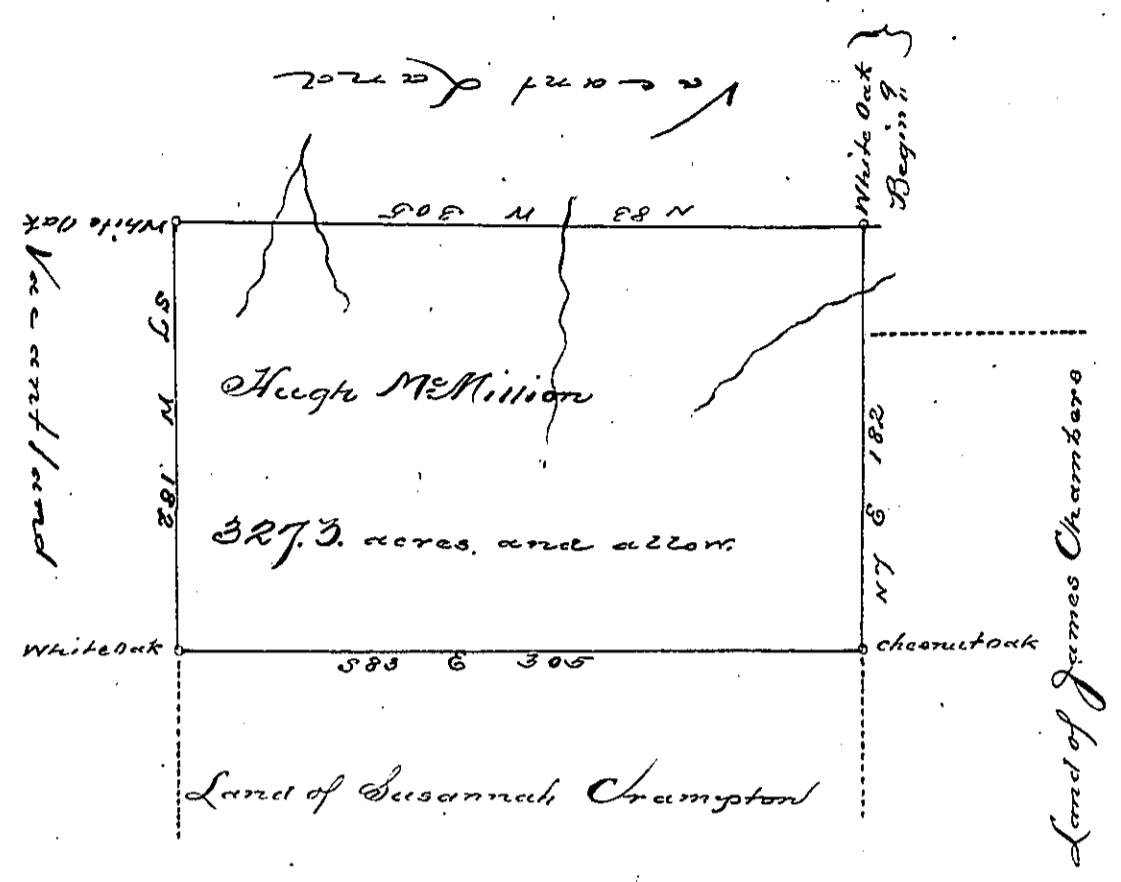 Vacant Land
White Oak }
Begin'g
White Oak
N 83 W 305
Vacant land
S 7 W 182
Hugh McMillion
327.3. acres. and allow.
N 7 E 182
Land of James Chambers
White Oak
S 83 E 305
Chesnut Oak
Land of Susannah Crampton